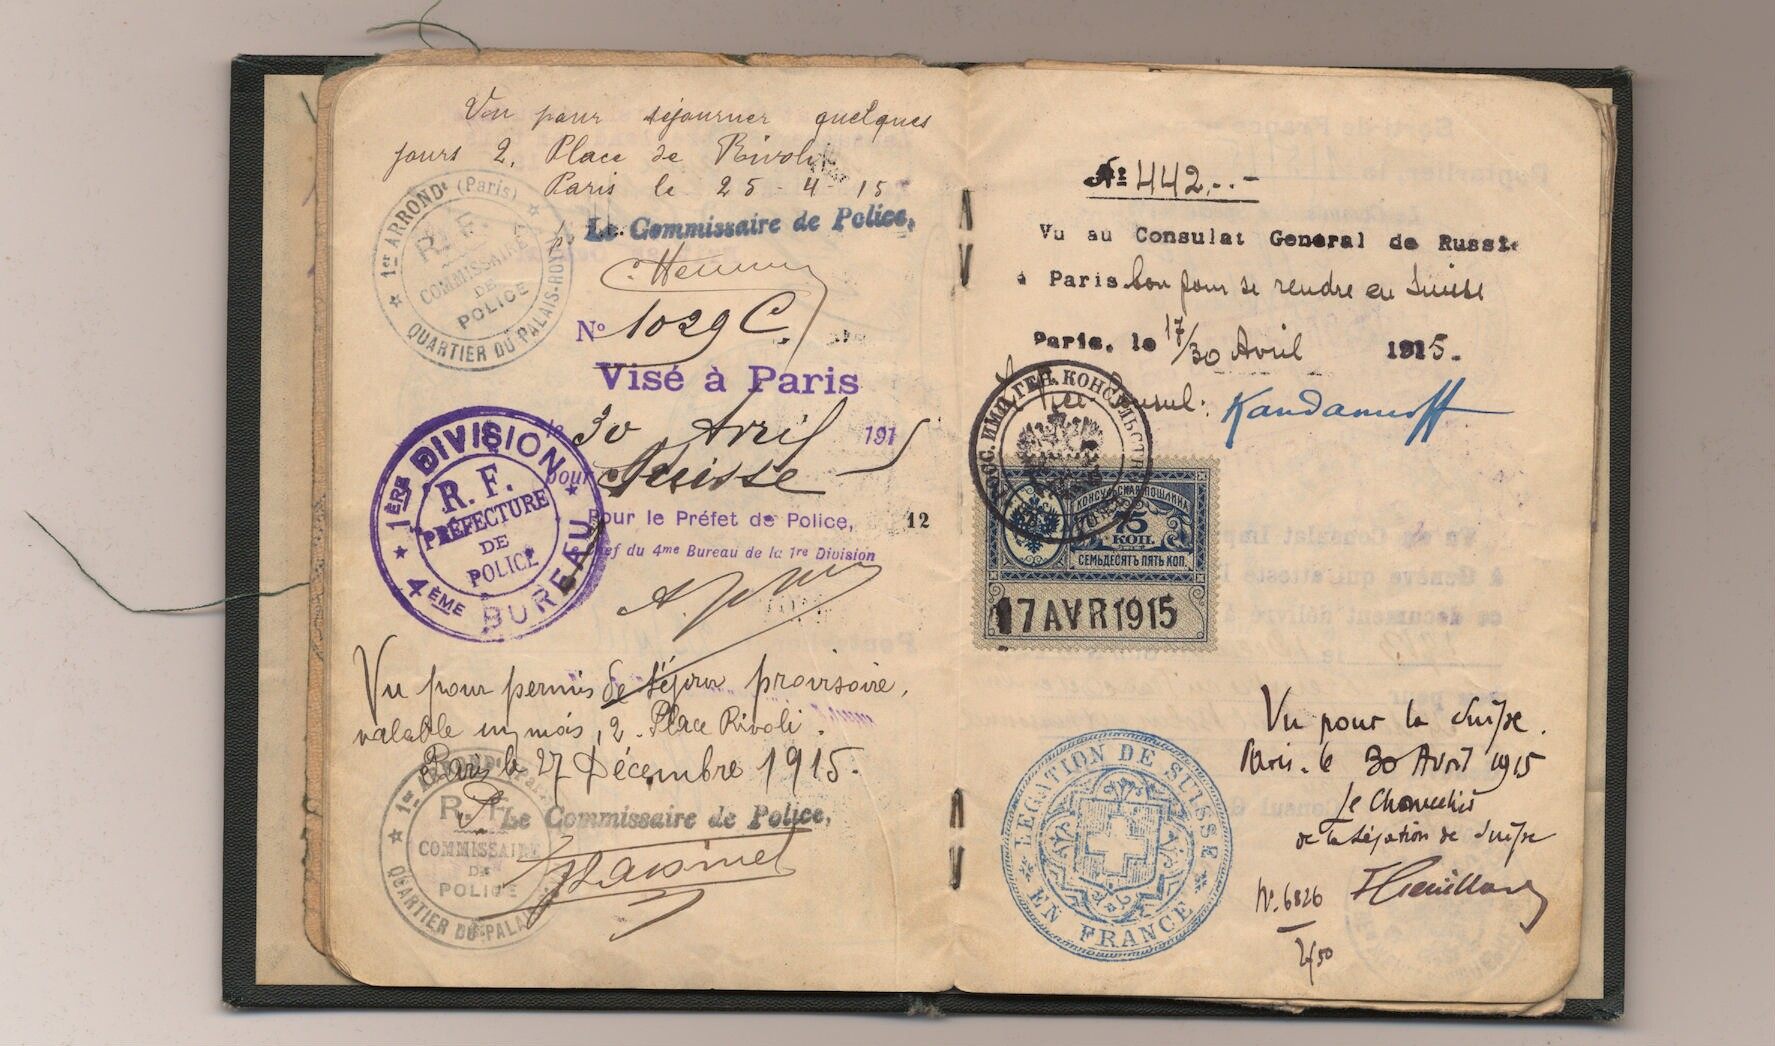 Vu pour séjourner quelques
jours 2, Place de Rivoli
Paris le 25-4-15
Le Commissaire de Police,
1er ARRONDt (Paris)
R. F.
COMMISSAIRE
DE
POLICE
QUARTIER DU PALAIS-ROYAL
No 1029 C.
Visé à Paris
le 30 Avril 1915
pour Suisse
Pour le Préfet de Police,
12
ef du 4me Bureau de la 1re Division
1ÈRE DIVISION
R. F.
PRÉFECTURE
DE
POLICE
4ÈME BUREAU
Vu pour permis de séjour provisoire,
valable un mois, 2. Place Rivoli.
Paris le 27 Décembre 1915.
Le Commissaire de Police,
1er
R. F.
COMMISSAIRE
DE
POLICE
QUARTIER DU PALAIS
No 442
Vu au Consulat General de Russie
à Paris bon pour se rendre en Suisse
Paris, le 17/30 Avril 1915.
Vice-Consul: Kandauroff
РОСС. ИМП. ГЕН. КОНСУЛЬСТВ
КОНСУЛЬСКАЯ ПОШЛИНА
75
КОП.
СЕМЬДЕСЯТЬ ПЯТЬ КОП.
17 AVR 1915
Vu pour la Suisse.
Paris. le 30 Avril 1915
Le Chancelier
de la Légation de Suisse
No. 6826
2f50
LEGATION DE SUISSE
EN FRANCE